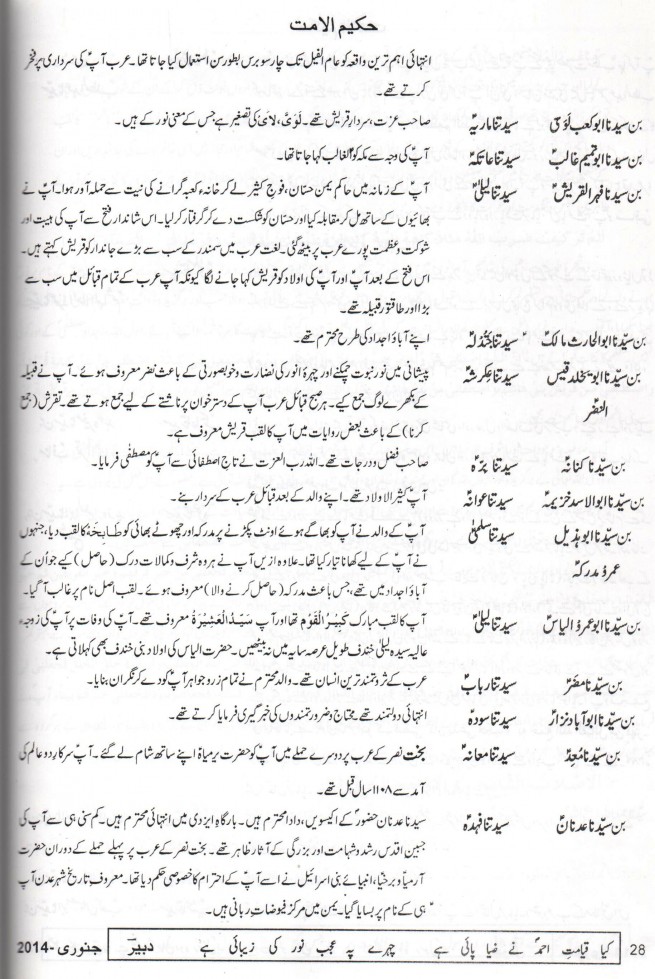 حکیم الامت
انتہائی اہم ترین واقعہ کو عام الفیل تک چار سو برس بطور سن استعمال کیا جاتا تھا۔ عرب آپؑ کی سرداری پر فخر
کرتے تھے۔
بن سیدنا ابو کعب لویؑ سیدتنا ماریہؑ صاحب عزت، سردار قریش تھے۔ لویٰ، لائ کی تصغیر ہے جس کے معنی نور کے ہیں۔
بن سیدنا ابو تمیم غالبؑ سیدتنا عاتکہؑ آپؑ کی وجہ سے مکہ کو الغالب کہا جاتا تھا۔
بن سیدنا فہر القریشؑ سیدتنا لیلیٰؑ آپؑ کے زمانہ میں حاکم یمن حسّان، فوج کثیر لے کر خانہء کعبہ گرانے کی نیت سے حملہ آور ہوا۔ آپؑ نے
بھائیوں کے ساتھ مل کر مقابلہ کیا اور حسّان کو شکست دے کر گرفتار کر لیا۔ اس شاندار فتح سے آپؑ کی ہیبت اور
شوکت و عظمت پورے عرب پر بیٹھ گئی۔ لغت عرب میں سمندر کے سب سے بڑے جاندار کو قریش کہتے ہیں۔
اس فتح کے بعد آپؑ اور آپؑ کی اولاد کو قریش کہا جانے لگا کیونکہ آپؑ عرب کے تمام قبائل میں سب سے
بڑا اور طاقتور قبیلہ تھے۔
بن سیدنا ابو الحارث مالکؑ سیدتنا جندلہؑ اپنے آباؤ اجداد کی طرح محترم تھے۔
بن سیدنا ابو یخلد قیس سیدتنا عکرشہؑ پیشانی میں نور نبوت چمکنے اور چہرۂ انور کی نضارت و خوبصورتی کے باعث نضر معروف ہوئے۔ آپؑ نے قبیلہ
النضرؑ کے بکھرے لوگ جمع کیے۔ ہر صبح قبائل عرب آپؑ کے دسترخوان پر ناشتے کے لیے جمع ہوتے تھے۔ تقرش (جمع
کرنا) کے باعث بعض روایات میں آپؑ کا لقب قریش معروف ہے۔
بن سیدنا کنانہؑ سیدتنا برّہؑ صاحب فضل و درجات تھے۔ اللہ رب العزت نے تاج اصطفائی سے آپؑ کو مصطفٰی فرمایا۔
بن سیدنا ابو الاسد خزیمہؑ سیدتنا عوانہؑ آپؑ کثیر الاولاد تھے۔ اپنے والد کے بعد قبائل عرب کے سردار بنے۔
بن سیدنا ابو ہذیل سیدتنا سلمیٰؑ آپؑ کے والد نے آپؑ کو بھاگے ہوئے اونٹ پکڑنے پر مدرکہ اور چھوٹے بھائی کو طابخہ کا لقب دیا، جنہوں
عمرو مدرکہؑ نے آپؑ کے لیے کھانا تیار کیا تھا۔ علاوہ ازیں آپؑ نے ہر وہ شرف و کمالات درک (حاصل) کیے جو اُن کے
آباؤ اجداد میں تھے، جس باعث مدرکہ (حاصل کرنے والا) معروف ہوئے۔ لقب اصل نام پر غالب آ گیا۔
بن سیدنا ابو عمرو الیاسؑ سیدتنا لیلیٰؑ آپؑ کا لقب مبارک کَبِیرُ القَوم تھا اور آپؑ سَیّدُ العَشِیرَۃ معروف تھے۔ آپؑ کی وفات پر آپؑ کی زوجہء
عالیہ سیدہ لیلیٰؑ خندف طویل عرصہ سایہ میں نہ بیٹھیں۔ حضرت الیاسؑ کی اولاد بنی خندف بھی کہلاتی ہے۔
بن سیدنا مضرؑ سیدتنا ربابؑ عرب کے ثروتمند ترین انسان تھے۔ والد محترم نے تمام زر و جواہر آپؑ کو دے کر نگران بنایا۔
بن سیدنا ابو آیاد نزارؑ سیدتنا سودہؑ انتہائی دولتمند تھے۔ محتاج و ضرورتمندوں کی خبر گیری فرمایا کرتے تھے۔
بن سیدنا معدؑ سیدتنا معانہؑ بخت نصر کے عرب پر دوسرے حملے میں آپؑ کو حضرت یرمیاہؑ اپنے ساتھ شام لے گئے۔ آپؑ سرکار دو عالم کی
آمد سے ۱۱۰۸ سال قبل تھے۔
بن سیدنا عدنانؑ سیدتنا فہدہؑ سیدنا عدنان حضورؐ کے اکیسویں، دادا محترم ہیں۔ بارگاہ ایزدی میں انتہائی محترم ہیں۔ کم سنی ہی سے آپؑ کی
جبین اقدس رشد و شہامت اور بزرگی کے آثار ظاہر تھے۔ بخت نصر کے عرب پر پہلے حملے کے دوران حضرت
آرمیاؑ و برخیاؑ، انبیائے بنی اسرائیل نے اسے آپؑ کے احترام کا خصوصی حکم دیا تھا۔ معروف تاریخ شہر عدن آپؑ
ہی کے نام پر بسایا گیا۔ یمن میں مرکز فیوضات ربانی ہیں۔
28 کیا قیامتِ احمدؐ نے ضیا پائی ہے چہرے پہ عجب نور کی زیبائی ہے دبیرؔ جنوری-2014